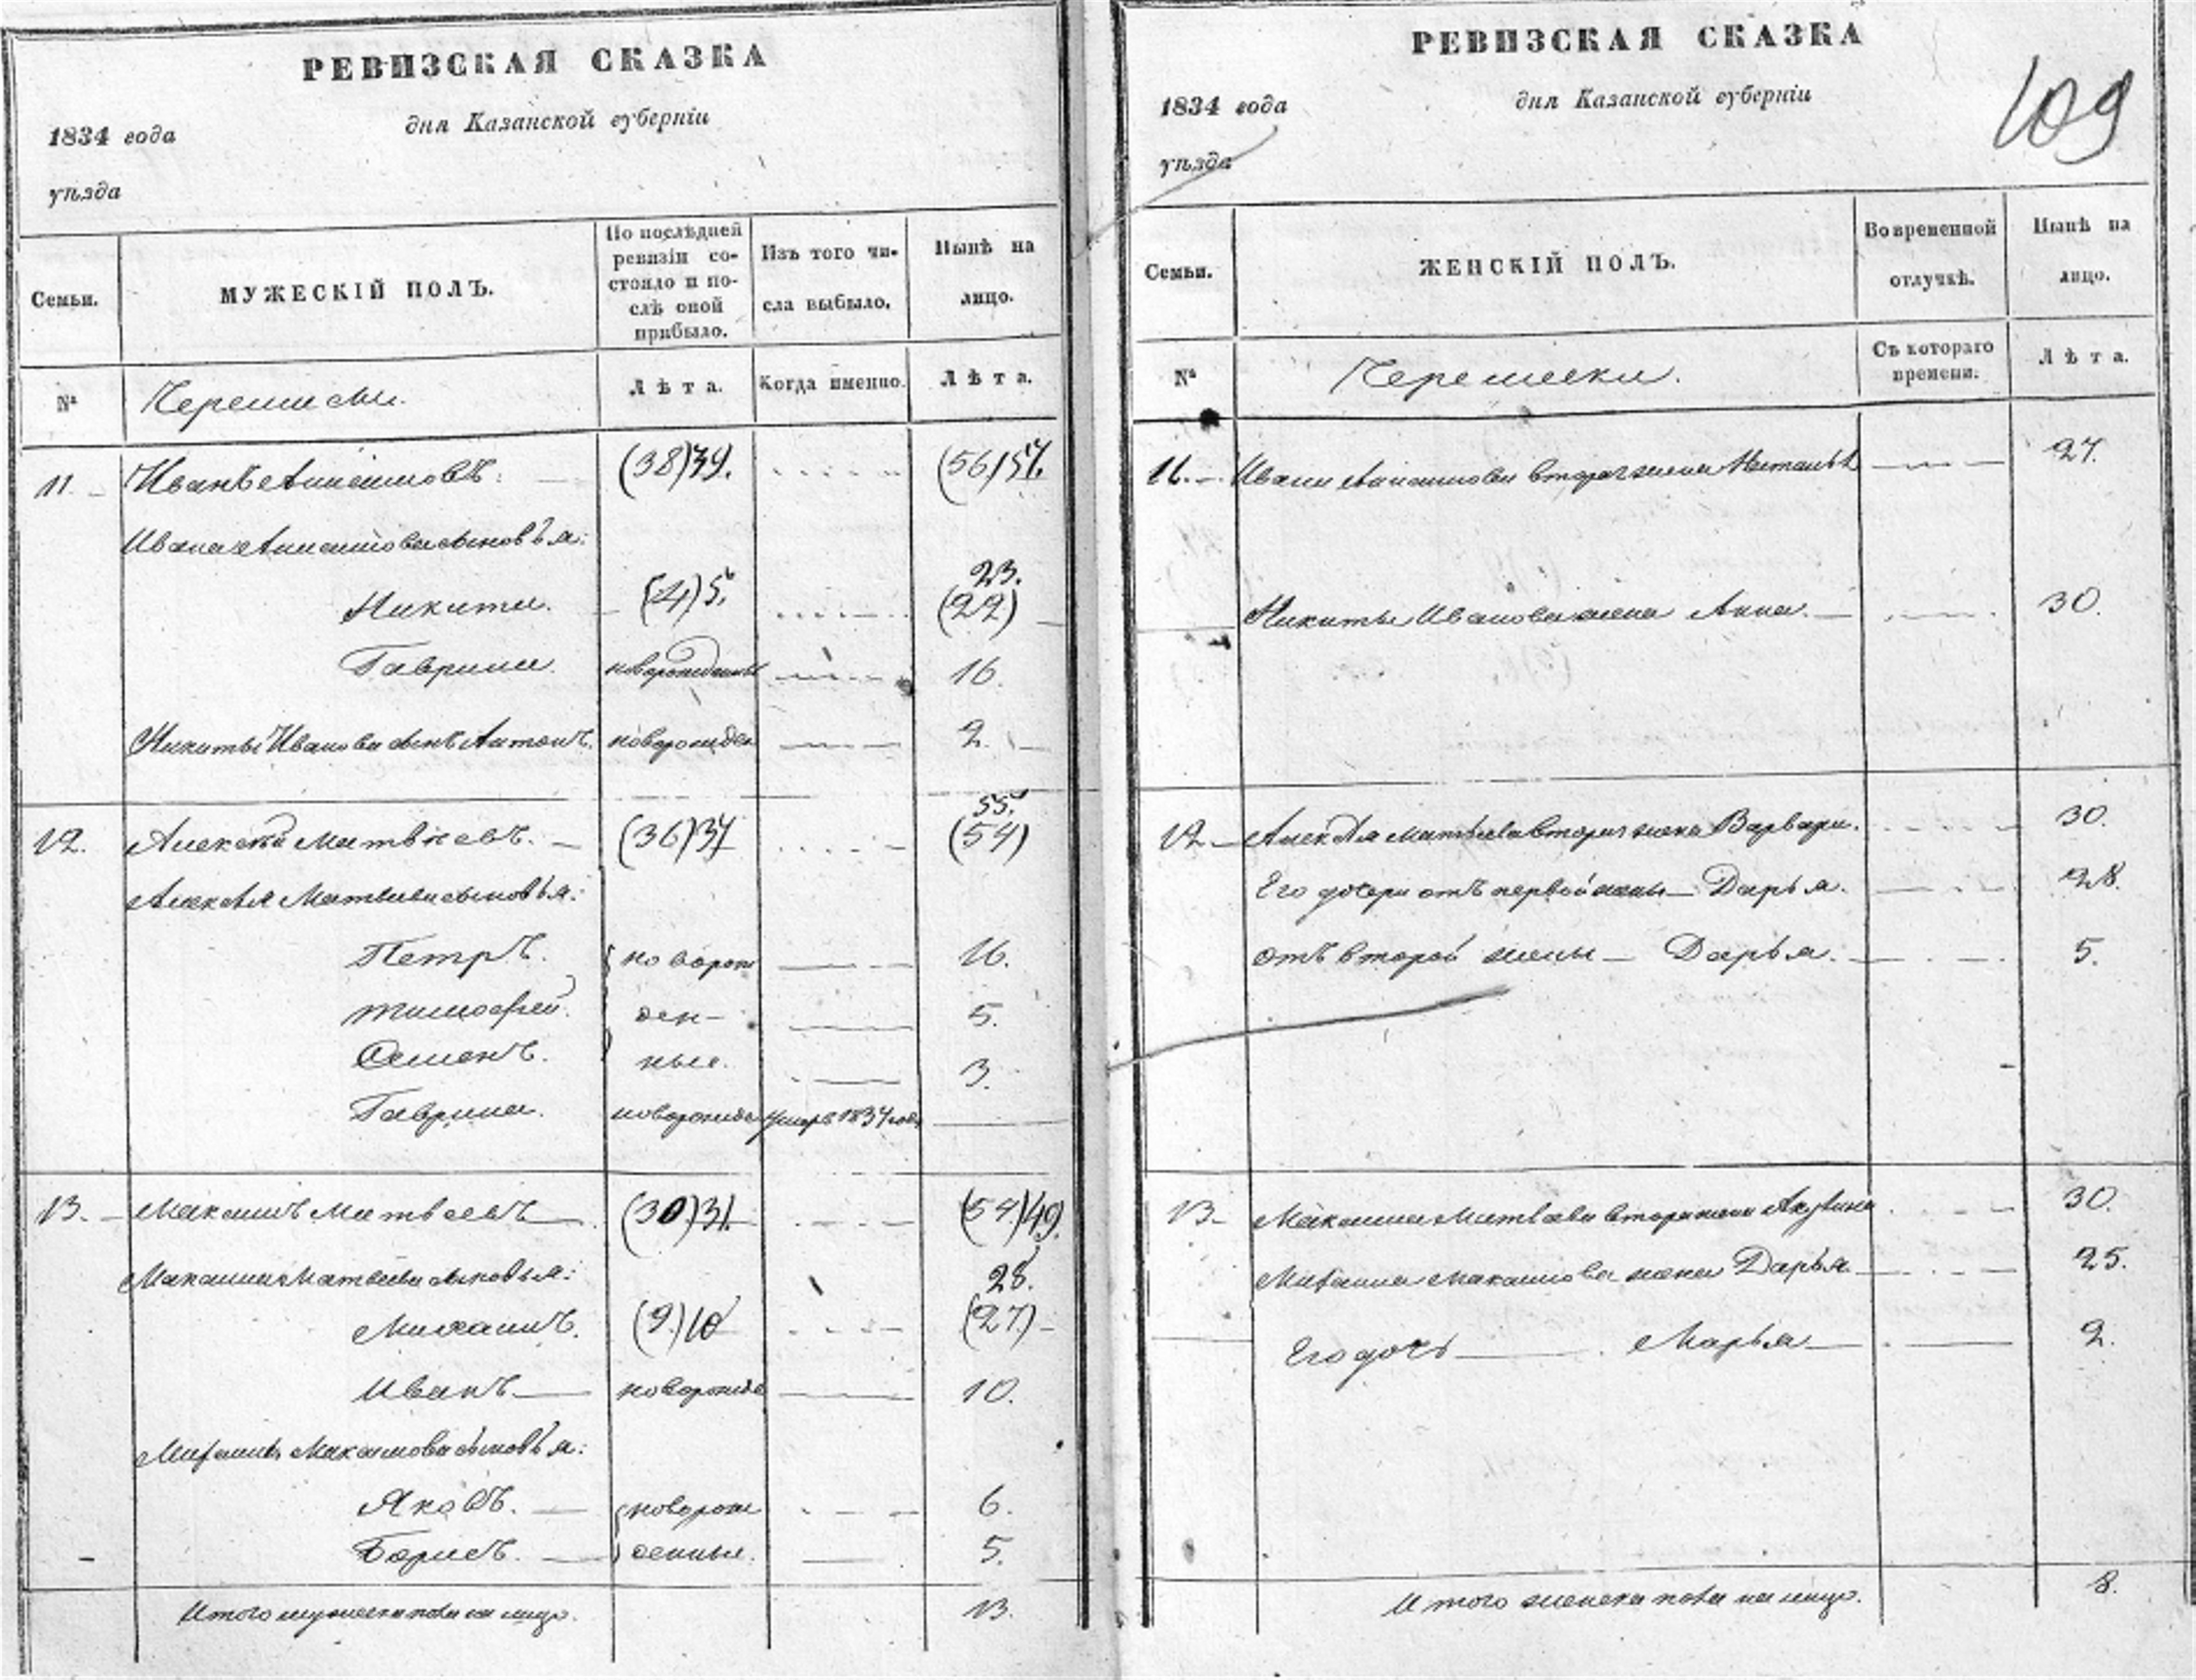 РЕВИЗСКАЯ СКАЗКА
1834 года
дня Казанской губерніи
уѣзда
Семьи.
МУЖЕСКІЙ ПОЛЪ.
По послѣдней ревизіи со-
стояло и по-
слѣ оной
прибыло.
Изъ того чи-
сла выбыло.
Нынѣ на
лицо.
№
Черемисы.
Лѣта.
Когда именно.
Лѣта.
11. Иванъ (38) 39. (56) 57.
Ивана сыновья:
23.
Никита. (4) 5. (22)
Гаврила. новорожденный 16.
Никиты Иванова сынъ Антонъ. новорожден 2.
55.
12. Алексѣй Матвѣевъ. (36) 37 (54)
Алексѣя Матвѣева сыновья:
Петръ. новорож 16.
Тимофей. ден- 5.
Семенъ. ные. 3.
Гаврила. новорожде умеръ 1834 года
13. Максимъ Матвѣевъ (30) 31. (54) 49.
Максима Матвѣева сыновья: 28.
Михаилъ. (9) 10 (27)
Иванъ новорожде 10.
Михаила Максимова сыновья:
Яковъ. новорож 6.
Борисъ. денные. 5.
Итого мужеска пола на лицо. 13.
РЕВИЗСКАЯ СКАЗКА
109
1834 года
дня Казанской губерніи
уѣзда
Семьи.
ЖЕНСКІЙ ПОЛЪ.
Во временной
отлучкѣ.
Нынѣ на
лицо.
№
Черемиски.
Съ котораго
времени.
Лѣта.
11. Ивана вторая жена Наталья 27.
Никиты Иванова жена Анна. 30.
12. Алексѣя Матвѣева вторая жена Варвара. 30.
Его дочери отъ первой жены Дарья. 28.
отъ второй жены Дарья. 5.
13. Максима Матвѣева вторая жена Акулина 30.
Михаила Максимова жена Дарья 25.
Его дочь Марья 2.
Итого женска пола на лицо. 8.